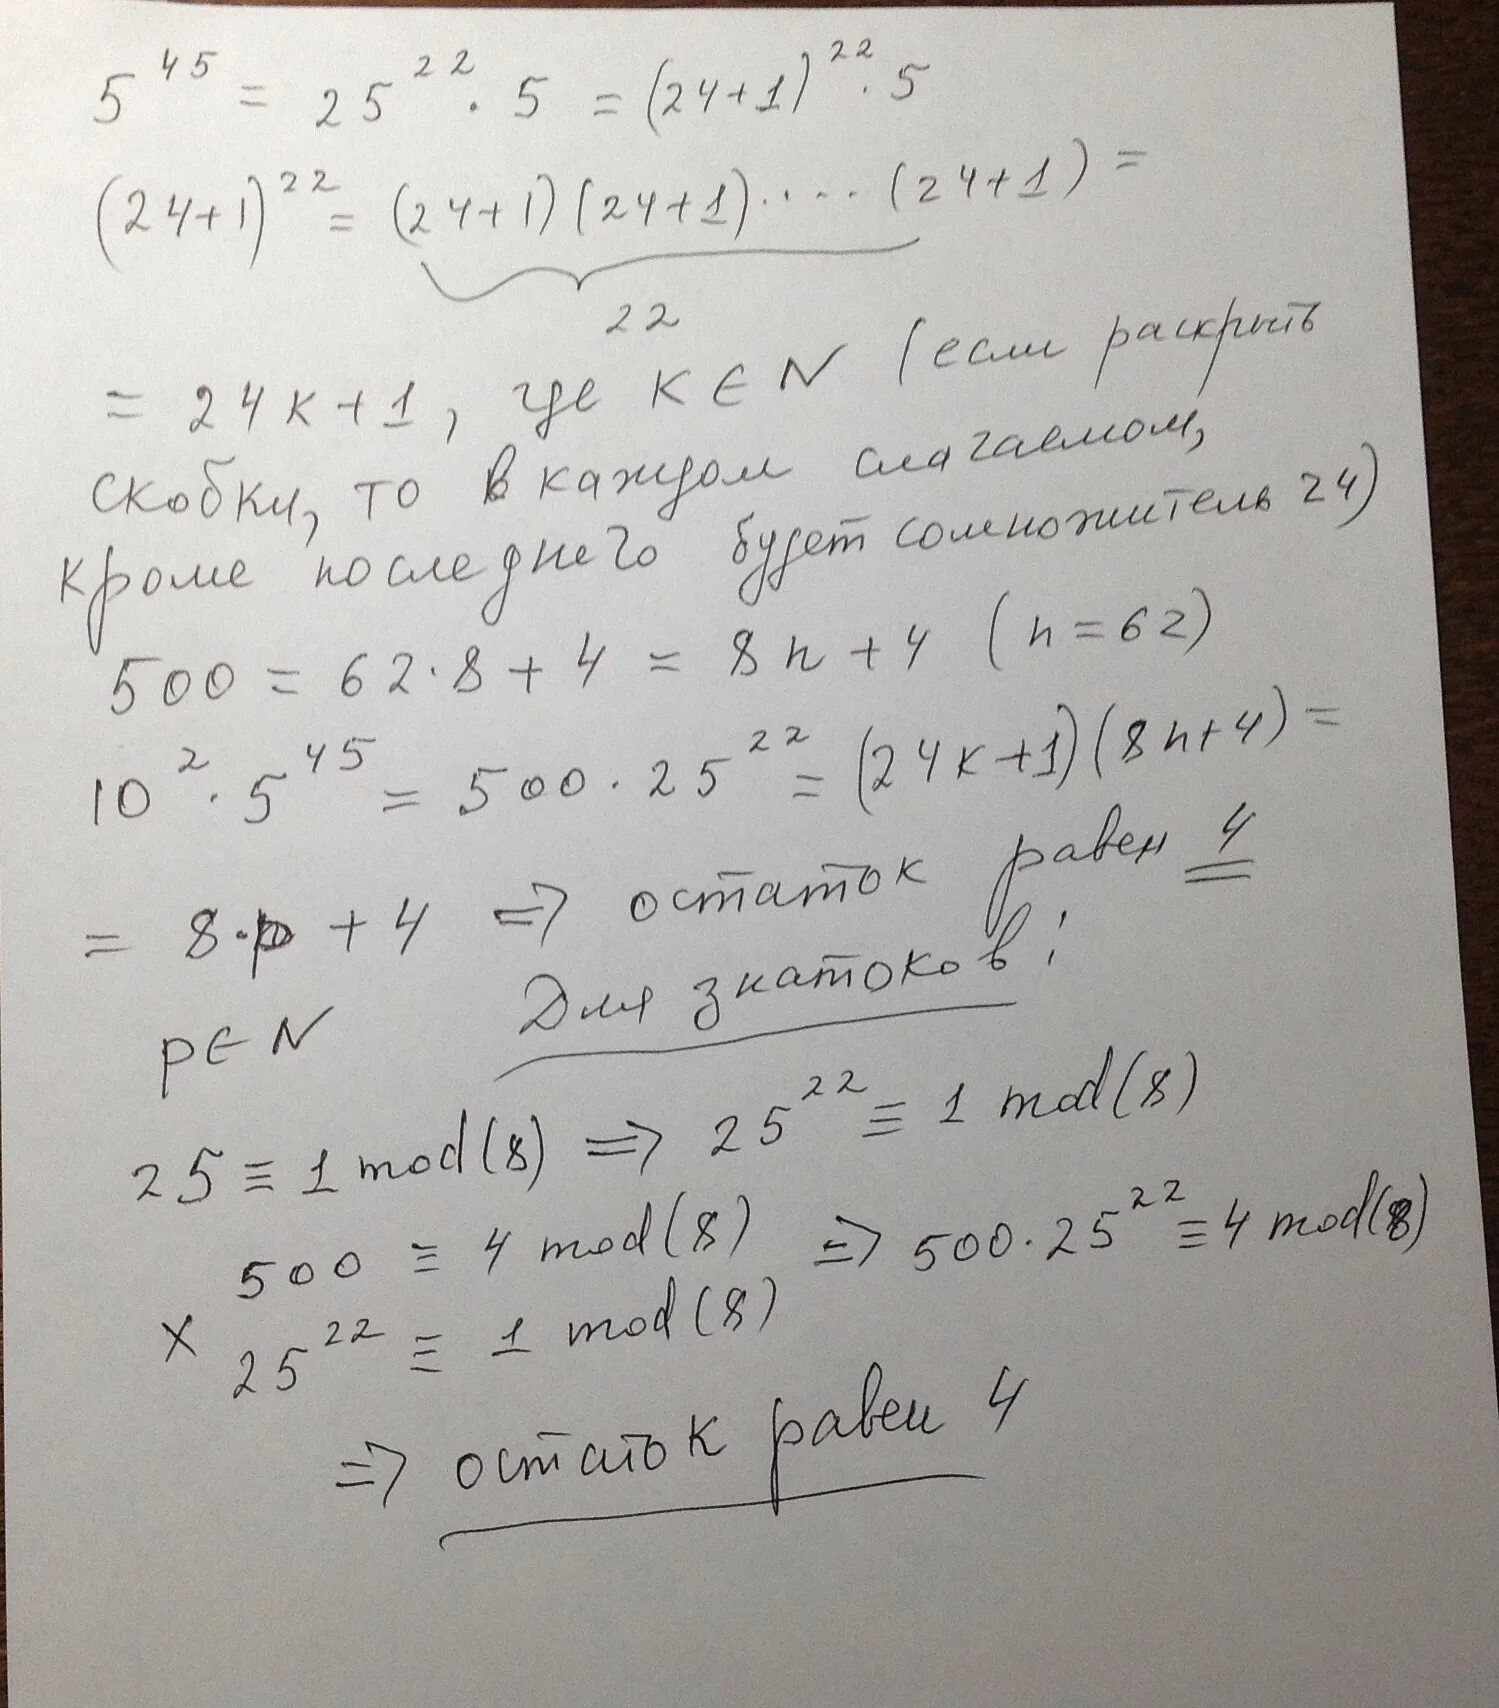 5^45 = 25^22 · 5 = (24+1)^22 · 5
(24+1)^22 = (24+1)(24+1)····(24+1) =
22
= 24к+1, где к∈N (если раскрыть
скобки, то в каждом слагаемом,
кроме последнего будет сомножитель 24)
500 = 62·8+4 = 8n+4 (n=62)
10^2 · 5^45 = 500·25^22 = (24к+1)(8n+4) =
= 8·p + 4 => остаток равен 4
p∈N Для знатоков:
25 ≡ 1 mod(8) => 25^22 ≡ 1 mod(8)
500 ≡ 4 mod(8) => 500·25^22 ≡ 4 mod(8)
× 25^22 ≡ 1 mod(8)
=> остаток равен 4